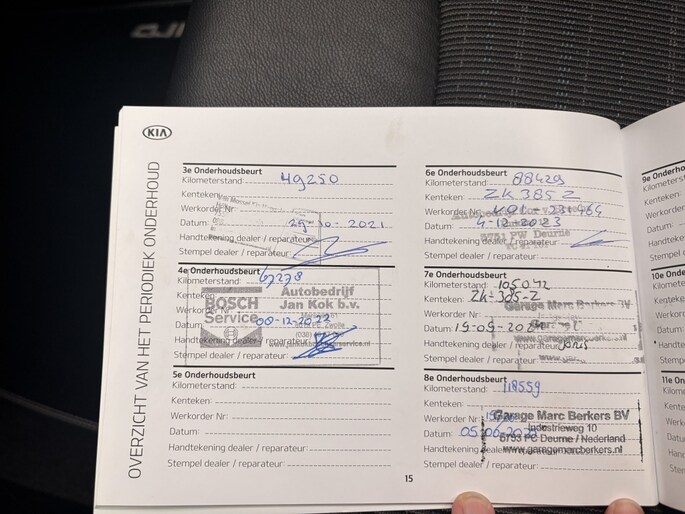 KIA
OVERZICHT VAN HET PERIODIEK ONDERHOUD
3e Onderhoudsbeurt
Kilometerstand: 49250
Kenteken:
Werkorder Nr
Datum: 29-10-2021
Handtekening dealer / reparateur:
Stempel dealer / reparateur:
4e Onderhoudsbeurt
Kilometerstand: 67278
Kenteken:
BOSCH Service
Autobedrijf
Jan Kok b.v.
Werkorder Nr
Datum: 08-12-2022
Zwolle
Handtekening dealer / reparateur:
Stempel dealer / reparateur:
5e Onderhoudsbeurt
Kilometerstand:
Kenteken:
Werkorder Nr:
Datum:
Handtekening dealer / reparateur:
Stempel dealer / reparateur:
6e Onderhoudsbeurt
Kilometerstand: 88429
Kenteken: ZK 385 Z
Werkorder Nr
Datum: 4-12-2023
5751 PW Deurne
Handtekening dealer / reparateur:
Stempel dealer / reparateur:
7e Onderhoudsbeurt
Kilometerstand: 105042
Kenteken: ZK-385-Z
Garage Marc Berkers BV
Werkorder Nr
Datum: 19-09-202
Handtekening dealer / reparateur:
Stempel dealer / reparateur:
8e Onderhoudsbeurt
Kilometerstand: 118559
Kenteken:
Werkorder Nr:
Garage Marc Berkers BV
Datum: 05-06-20
Industrieweg 10
5753 PC Deurne / Nederland
Handtekening dealer
www.garagemarcberkers.nl
Stempel dealer / reparateur:
15
9e Onderhoud
Kilometerstand
Kenteken:
Werkorder
Datum:
Handteken
Stempel d
10e On
Kilometer
Kenteke
Werkor
Datum
Handt
Stem
11e On
Kilo
Ken
We
Da